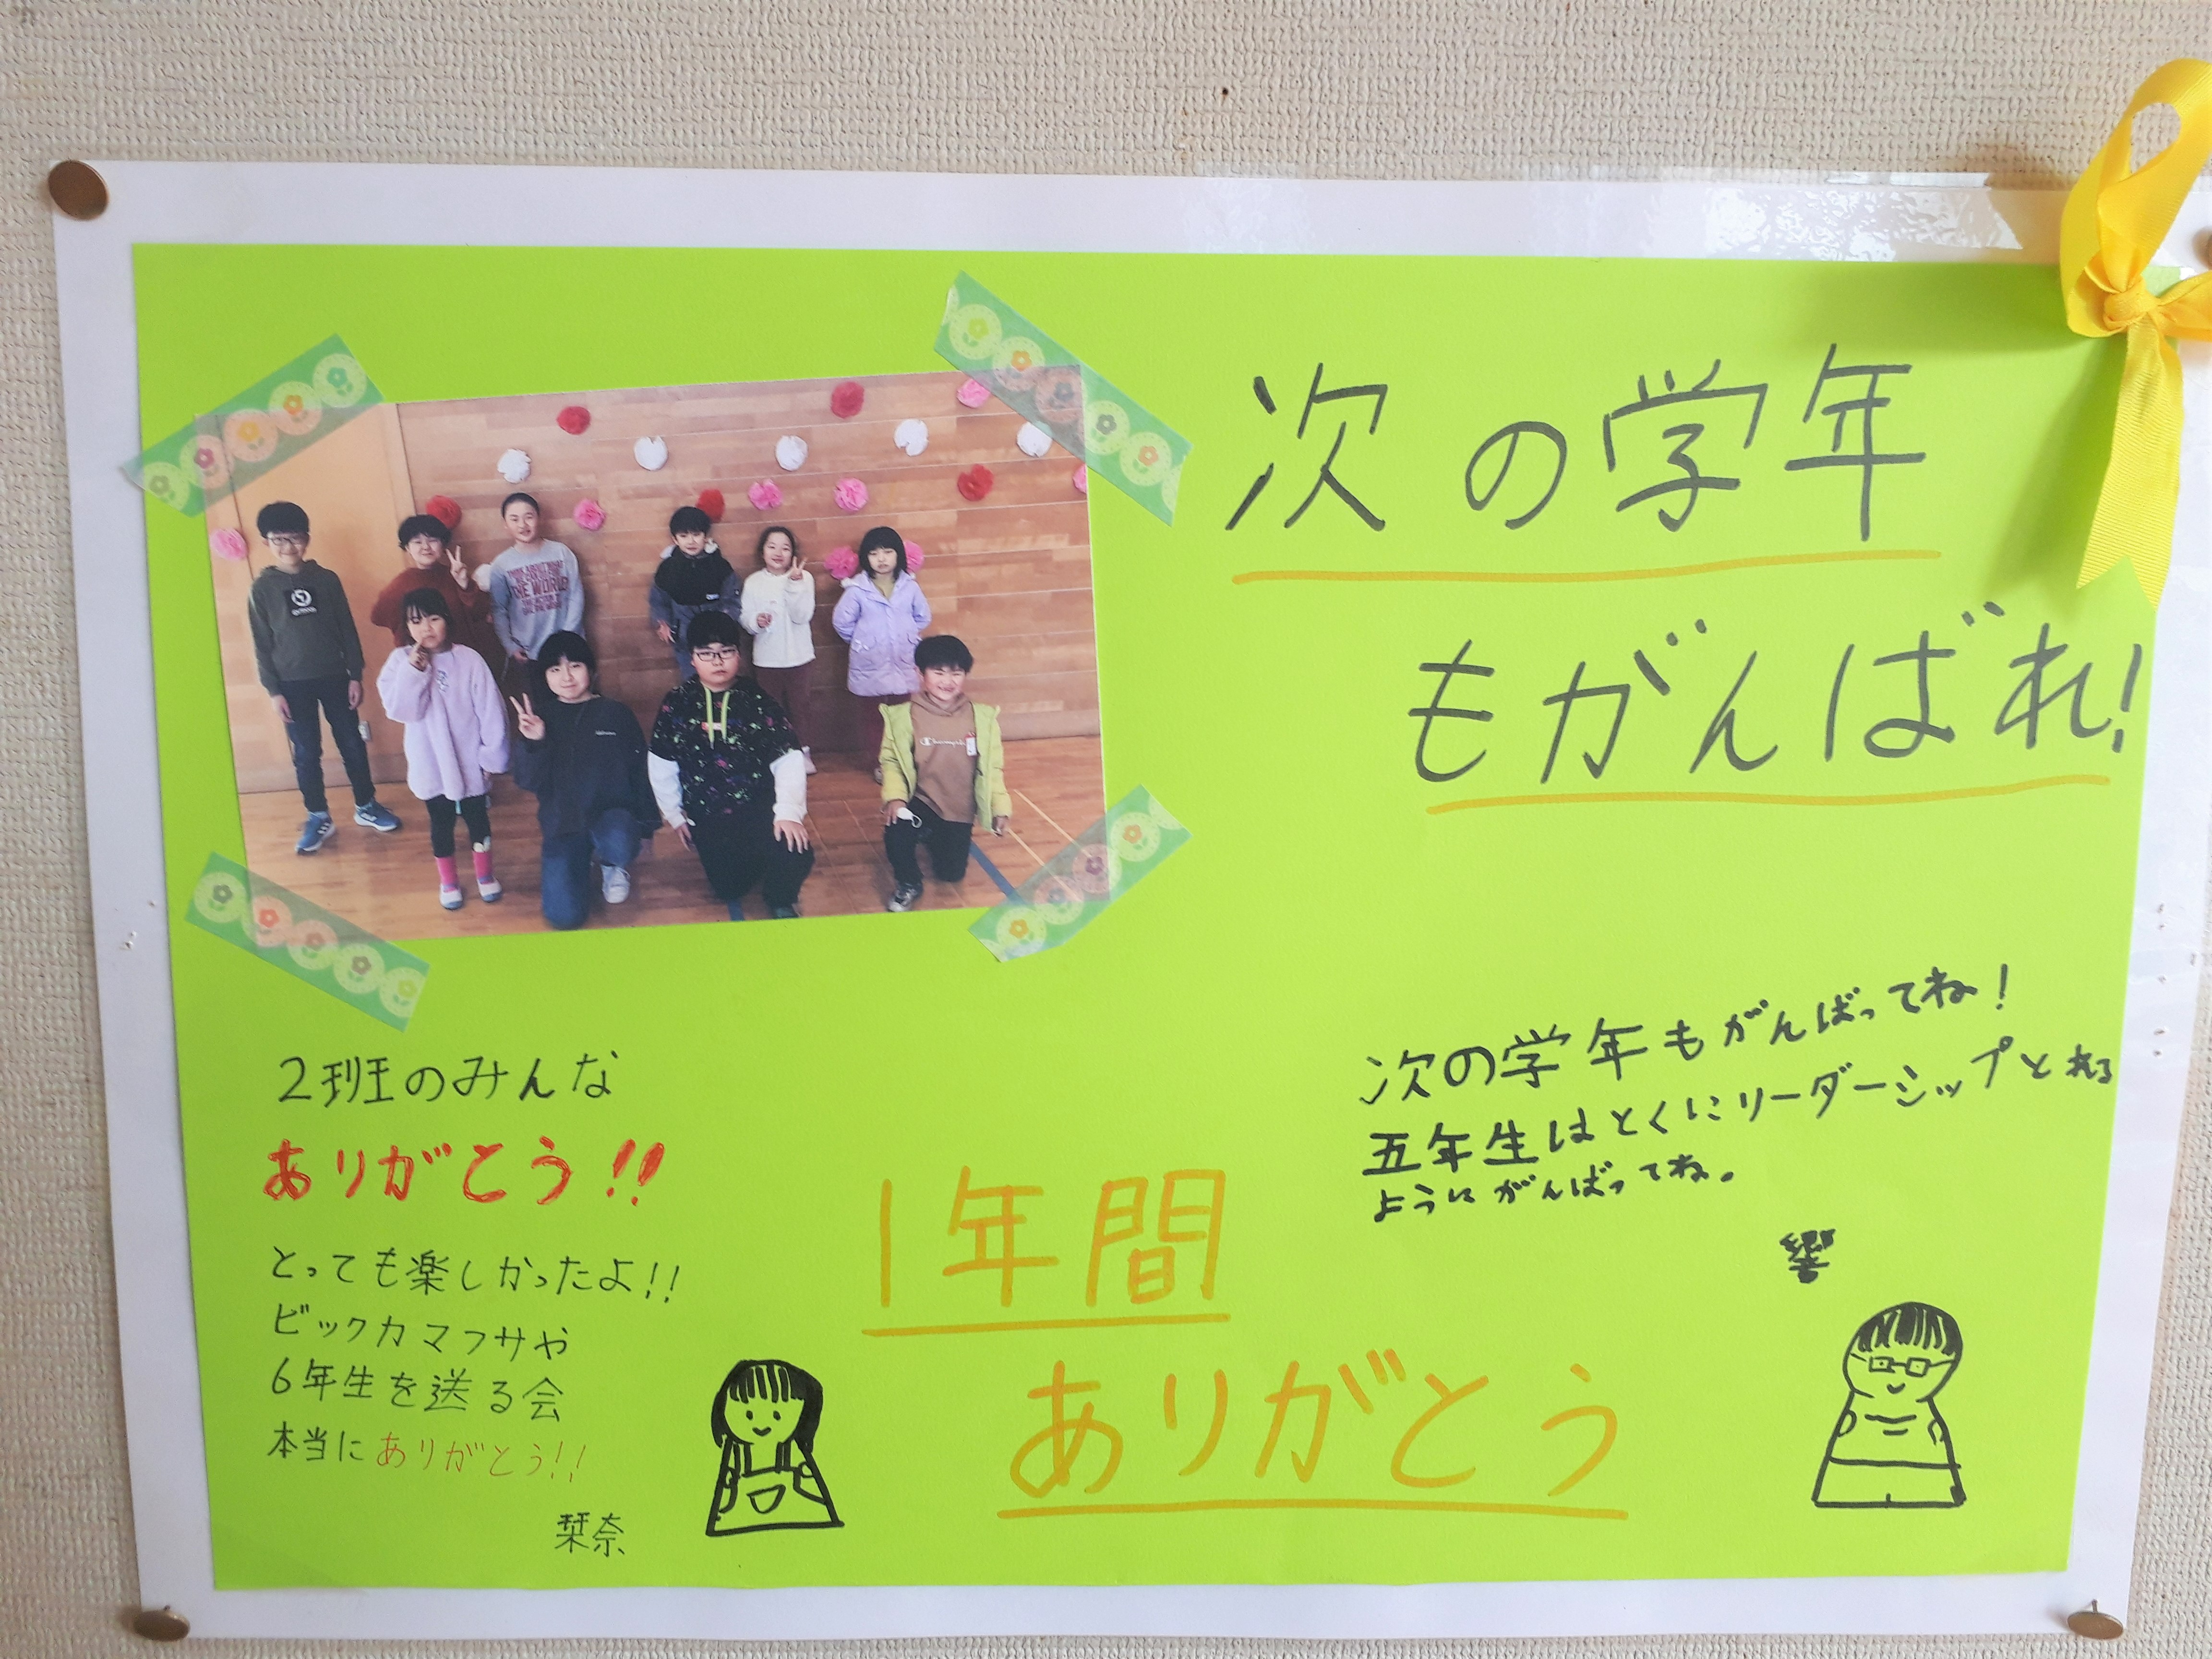 次の学年
もがんばれ!
THE WORLD
Champion
2班のみんな
ありがとう!!
とっても楽しかったよ!!
ビックカマフサや
6年生を送る会
本当にありがとう!!
栞奈
1年間
ありがとう
次の学年もがんばってね!
五年生はとくにリーダーシップとれる
ようにがんばってね。
響